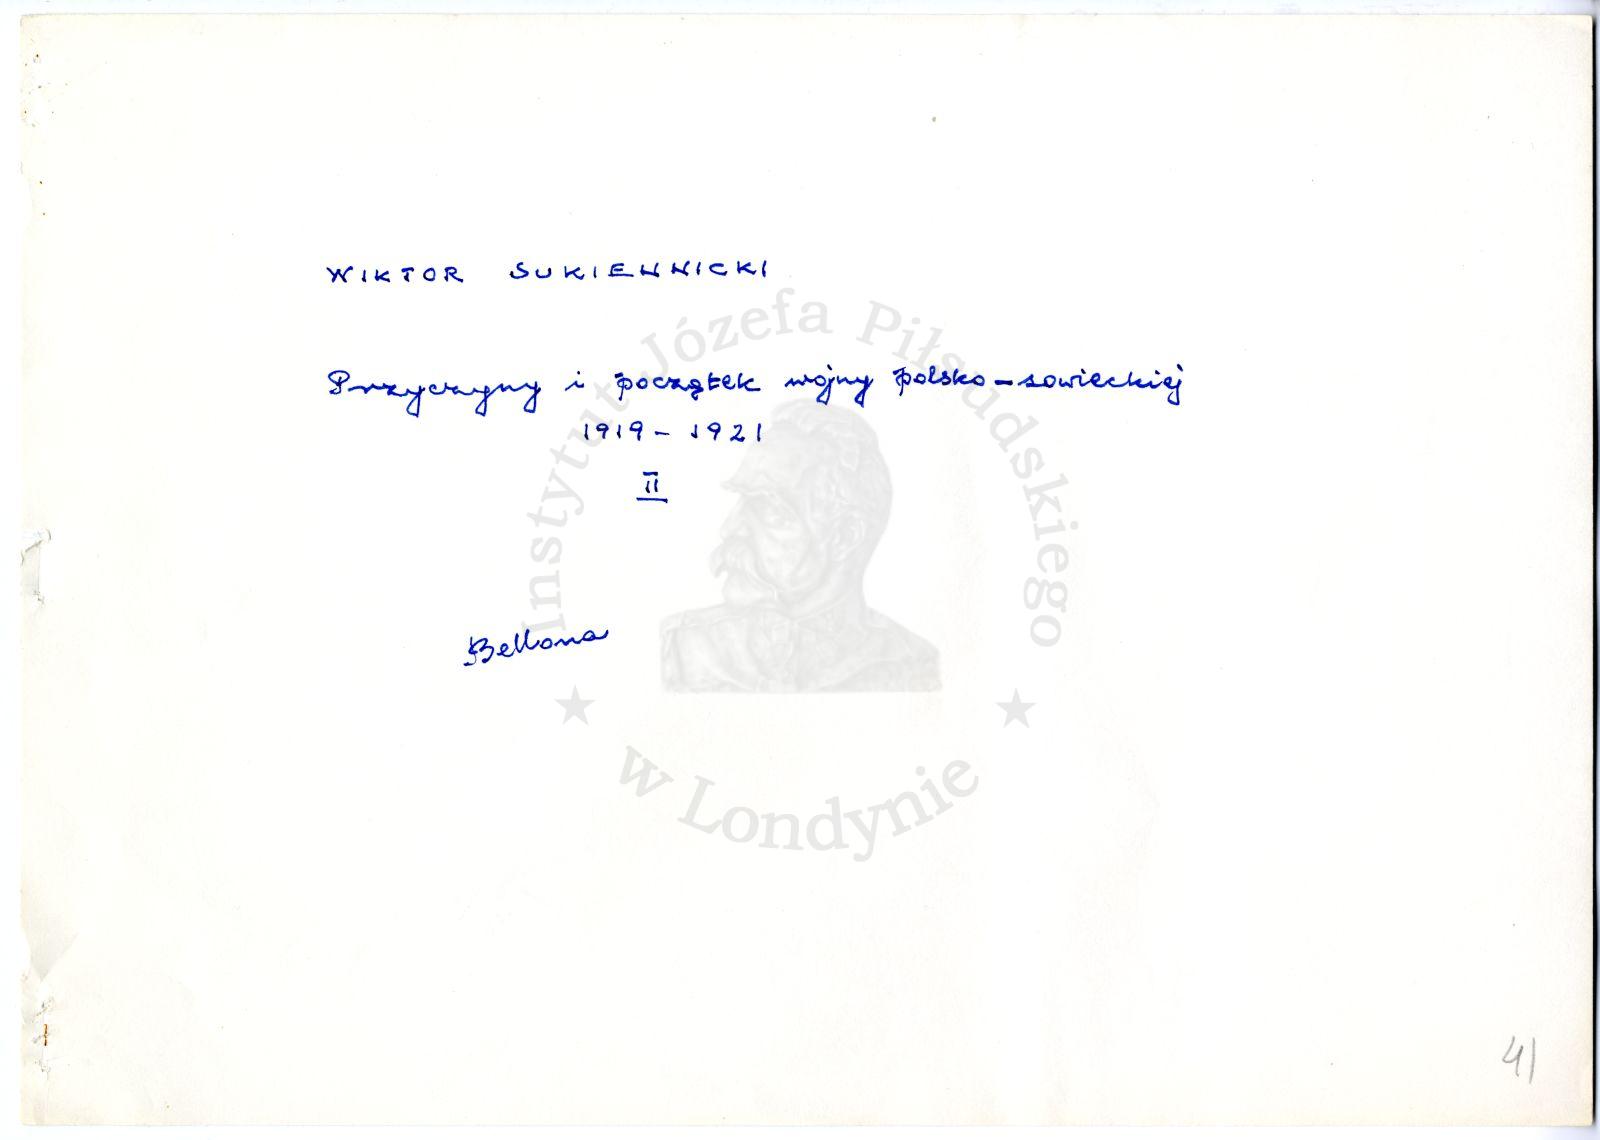 WIKTOR SUKIENNICKI
Przyczyny i początek wojny polsko-sowieckiej
1919-1921
II
Bellona
Instytut Józefa Piłsudskiego
w Londynie
41